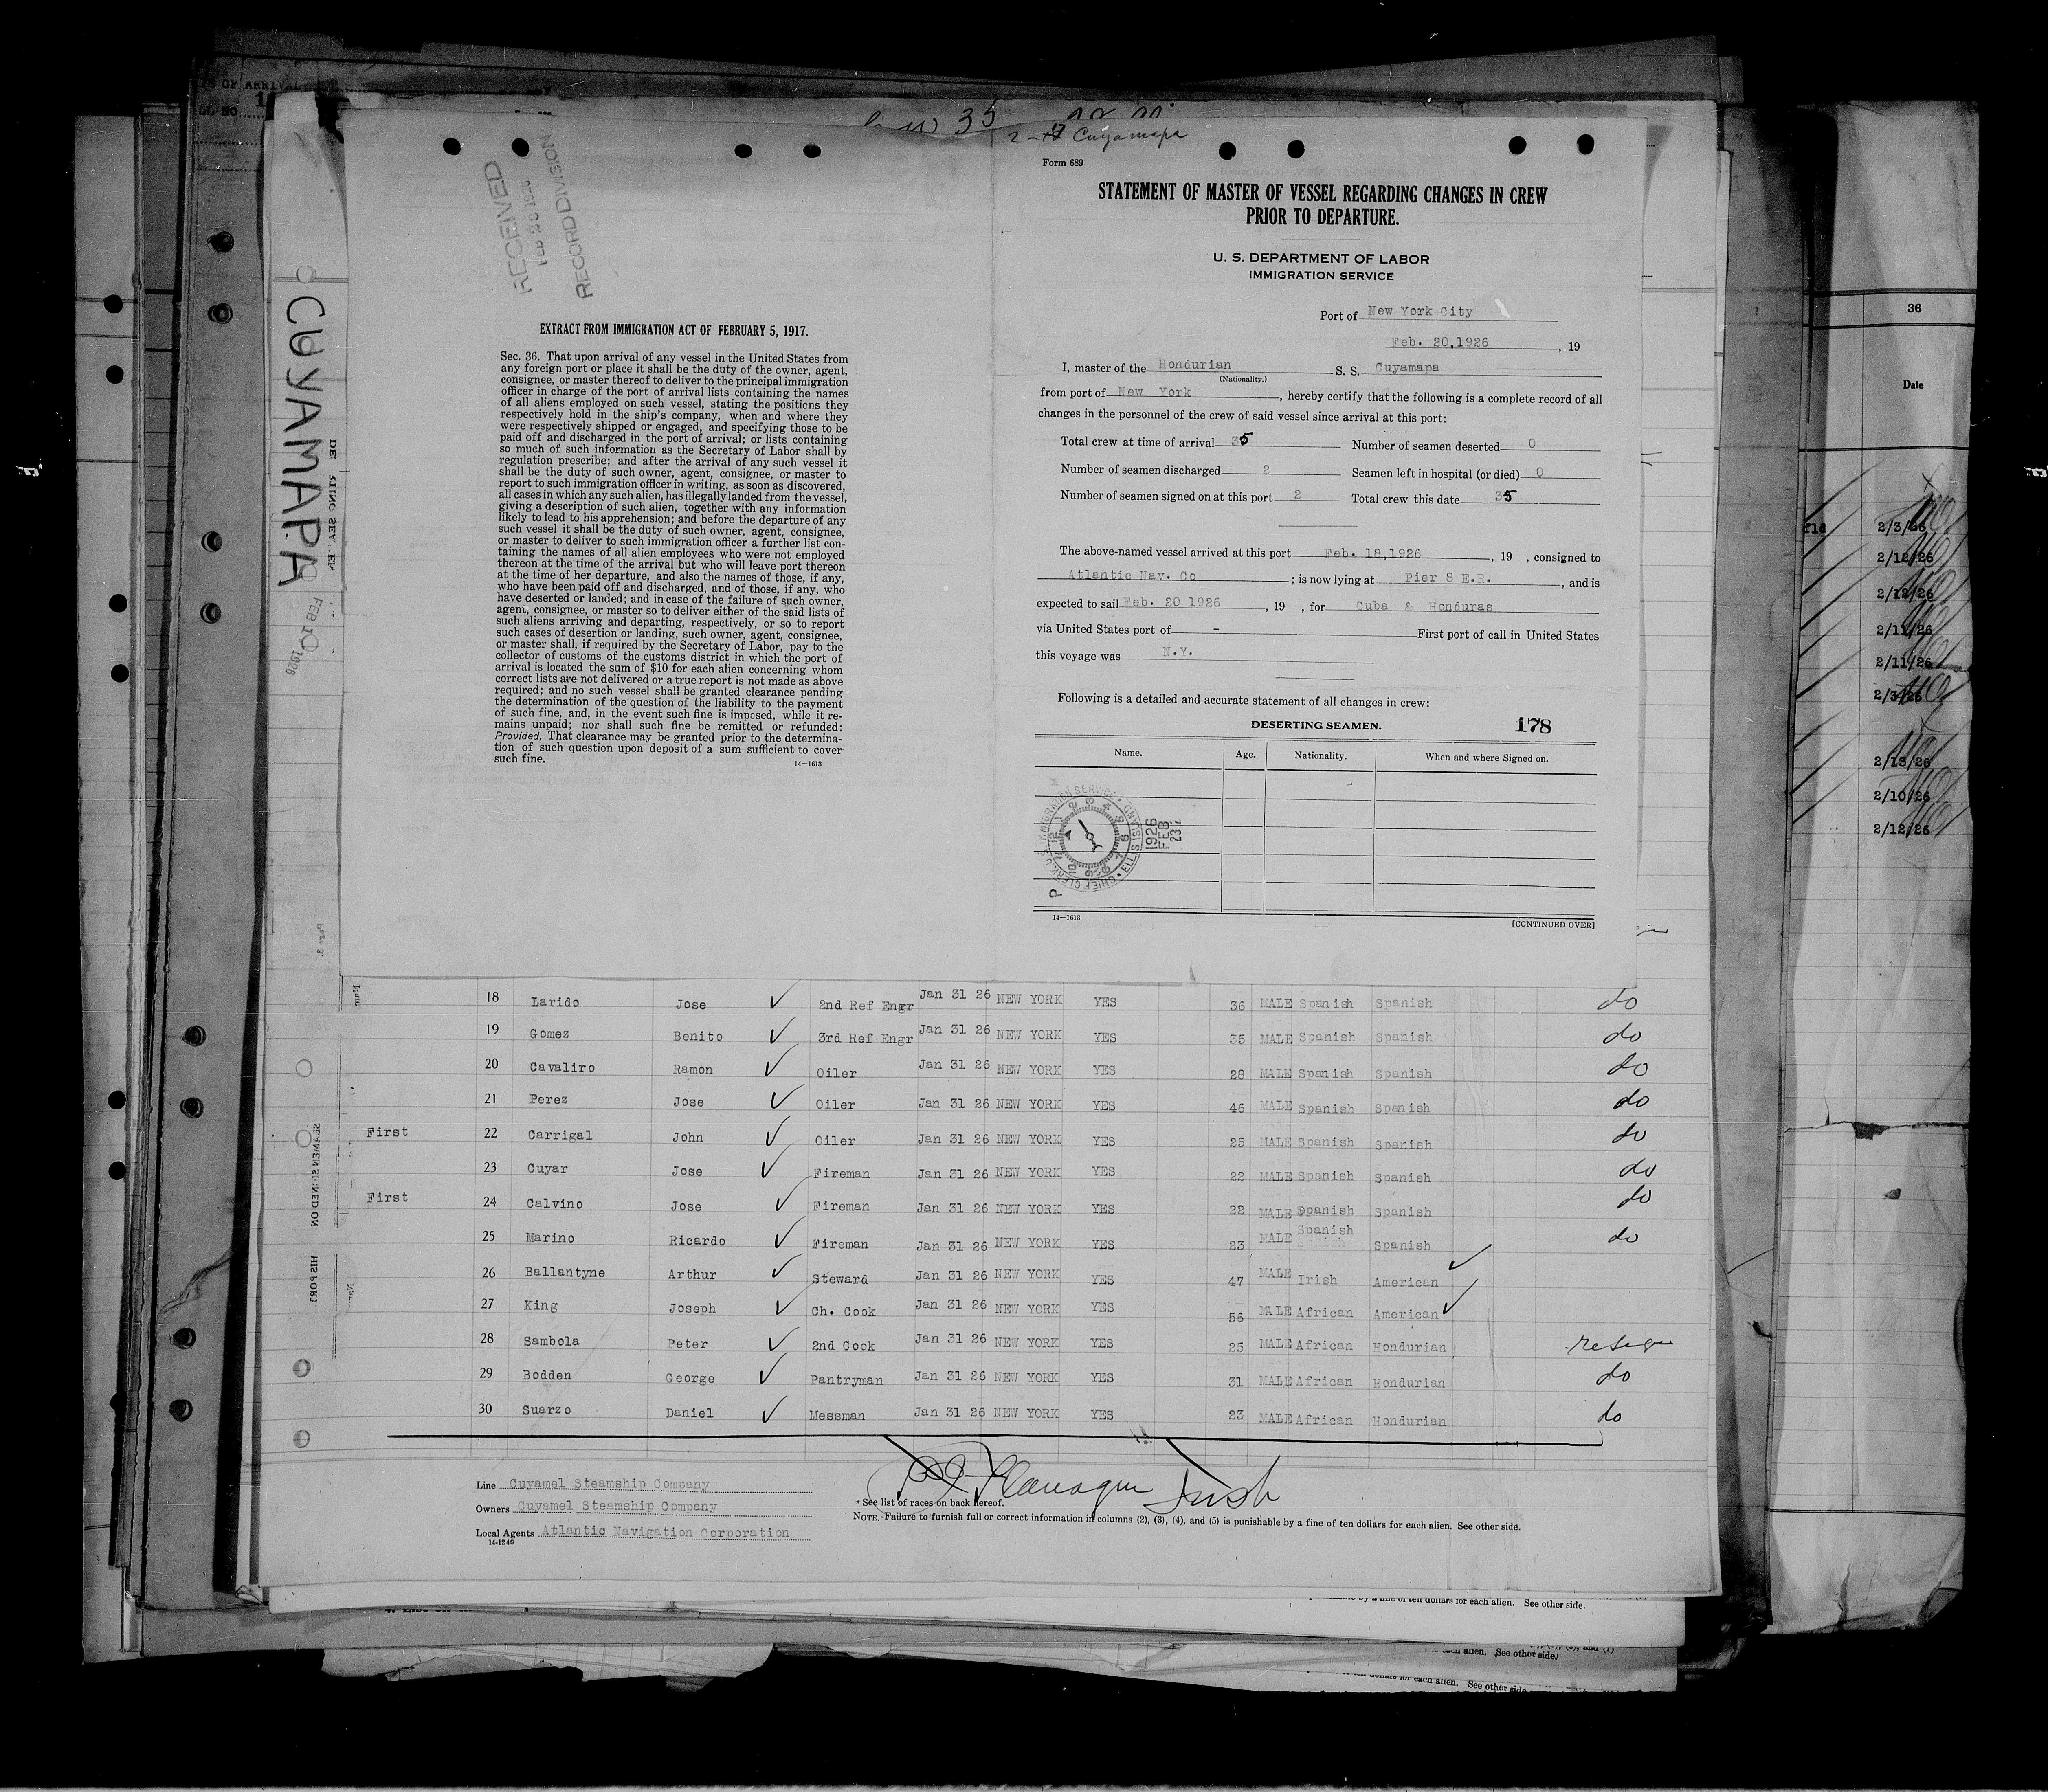 S OF ARRIVAL
LL NO
35
2-17 Cuyamapa
RECEIVED
FEB 23 1926
RECORD DIVISION
EXTRACT FROM IMMIGRATION ACT OF FEBRUARY 5, 1917.
Sec. 36. That upon arrival of any vessel in the United States from
any foreign port or place it shall be the duty of the owner, agent,
consignee, or master thereof to deliver to the principal immigration
officer in charge of the port of arrival lists containing the names
of all aliens employed on such vessel, stating the positions they
respectively hold in the ship's company, when and where they
were respectively shipped or engaged, and specifying those to be
paid off and discharged in the port of arrival; or lists containing
so much of such information as the Secretary of Labor shall by
regulation prescribe; and after the arrival of any such vessel it
shall be the duty of such owner, agent, consignee, or master to
report to such immigration officer in writing, as soon as discovered,
all cases in which any such alien, has illegally landed from the vessel,
giving a description of such alien, together with any information
likely to lead to his apprehension; and before the departure of any
such vessel it shall be the duty of such owner, agent, consignee,
or master to deliver to such immigration officer a further list con-
taining the names of all alien employees who were not employed
thereon at the time of the arrival but who will leave port thereon
at the time of her departure, and also the names of those, if any,
who have been paid off and discharged, and of those, if any, who
have deserted or landed; and in case of the failure of such owner,
agent, consignee, or master so to deliver either of the said lists of
such aliens arriving and departing, respectively, or so to report
such cases of desertion or landing, such owner, agent, consignee,
or master shall, if required by the Secretary of Labor, pay to the
collector of customs of the customs district in which the port of
arrival is located the sum of $10 for each alien concerning whom
correct lists are not delivered or a true report is not made as above
required; and no such vessel shall be granted clearance pending
the determination of the question of the liability to the payment
of such fine, and, in the event such fine is imposed, while it re-
mains unpaid; nor shall such fine be remitted or refunded:
Provided, That clearance may be granted prior to the determina-
tion of such question upon deposit of a sum sufficient to cover
such fine.
14-1613
Form 689
STATEMENT OF MASTER OF VESSEL REGARDING CHANGES IN CREW
PRIOR TO DEPARTURE.
U. S. DEPARTMENT OF LABOR
IMMIGRATION SERVICE
Port of New York City
Feb. 20,1926, 19
I, master of the Hondurian S. S. Cuyamapa
(Nationality.)
from port of New York, hereby certify that the following is a complete record of all
changes in the personnel of the crew of said vessel since arrival at this port:
Total crew at time of arrival 35 Number of seamen deserted 0
Number of seamen discharged 2 Seamen left in hospital (or died) 0
Number of seamen signed on at this port 2 Total crew this date 35
The above-named vessel arrived at this port Feb. 18,1926, 19 , consigned to
Atlantic Nav. Co; is now lying at Pier 8 E.R., and is
expected to sail Feb. 20 1926, 19 , for Cuba & Honduras
via United States port of - First port of call in United States
this voyage was N.Y.
Following is a detailed and accurate statement of all changes in crew:
DESERTING SEAMEN. 178
Name. Age. Nationality. When and where Signed on.
CHIEF CLERK U.S. IMMIGRATION SERVICE • ELLIS ISLAND •
1926
FEB
23
P
14-1613 [CONTINUED OVER]
CUYAMAPA
FEB 1926
SEAMEN SIGNED ON
HIS PORT
18 Larido Jose 2nd Ref Engr Jan 31 26 NEW YORK YES 36 MALE Spanish Spanish do
19 Gomez Benito 3rd Ref Engr Jan 31 26 NEW YORK YES 35 MALE Spanish Spanish do
20 Cavaliro Ramon Oiler Jan 31 26 NEW YORK YES 28 MALE Spanish Spanish do
21 Perez Jose Oiler Jan 31 26 NEW YORK YES 46 MALE Spanish Spanish do
First 22 Carrigal John Oiler Jan 31 26 NEW YORK YES 25 MALE Spanish Spanish do
23 Cuyar Jose Fireman Jan 31 26 NEW YORK YES 22 MALE Spanish Spanish do
First 24 Calvino Jose Fireman Jan 31 26 NEW YORK YES 22 MALE Spanish Spanish do
25 Marino Ricardo Fireman Jan 31 26 NEW YORK YES 23 MALE Spanish Spanish do
26 Ballantyne Arthur Steward Jan 31 26 NEW YORK YES 47 MALE Irish American
27 King Joseph Ch. Cook Jan 31 26 NEW YORK YES 56 MALE African American
28 Sambola Peter 2nd Cook Jan 31 26 NEW YORK YES 25 MALE African Hondurian resign
29 Bodden George Pantryman Jan 31 26 NEW YORK YES 31 MALE African Hondurian do
30 Suarzo Daniel Messman Jan 31 26 NEW YORK YES 23 MALE African Hondurian do
Line Cuyamel Steamship Company
Owners Cuyamel Steamship Company
Local Agents Atlantic Navigation Corporation
14-1240
Flanagan Insp
*See list of races on back hereof.
NOTE.-Failure to furnish full or correct information in columns (2), (3), (4), and (5) is punishable by a fine of ten dollars for each alien. See other side.
36
Date
2/3/26
2/12/26
2/12/26
2/11/26
2/11/26
2/3/26
2/13/26
2/10/26
2/12/26
by a fine of ten dollars for each alien. See other side.
each alien. See other side.
of ten dollars for each alien. See other side